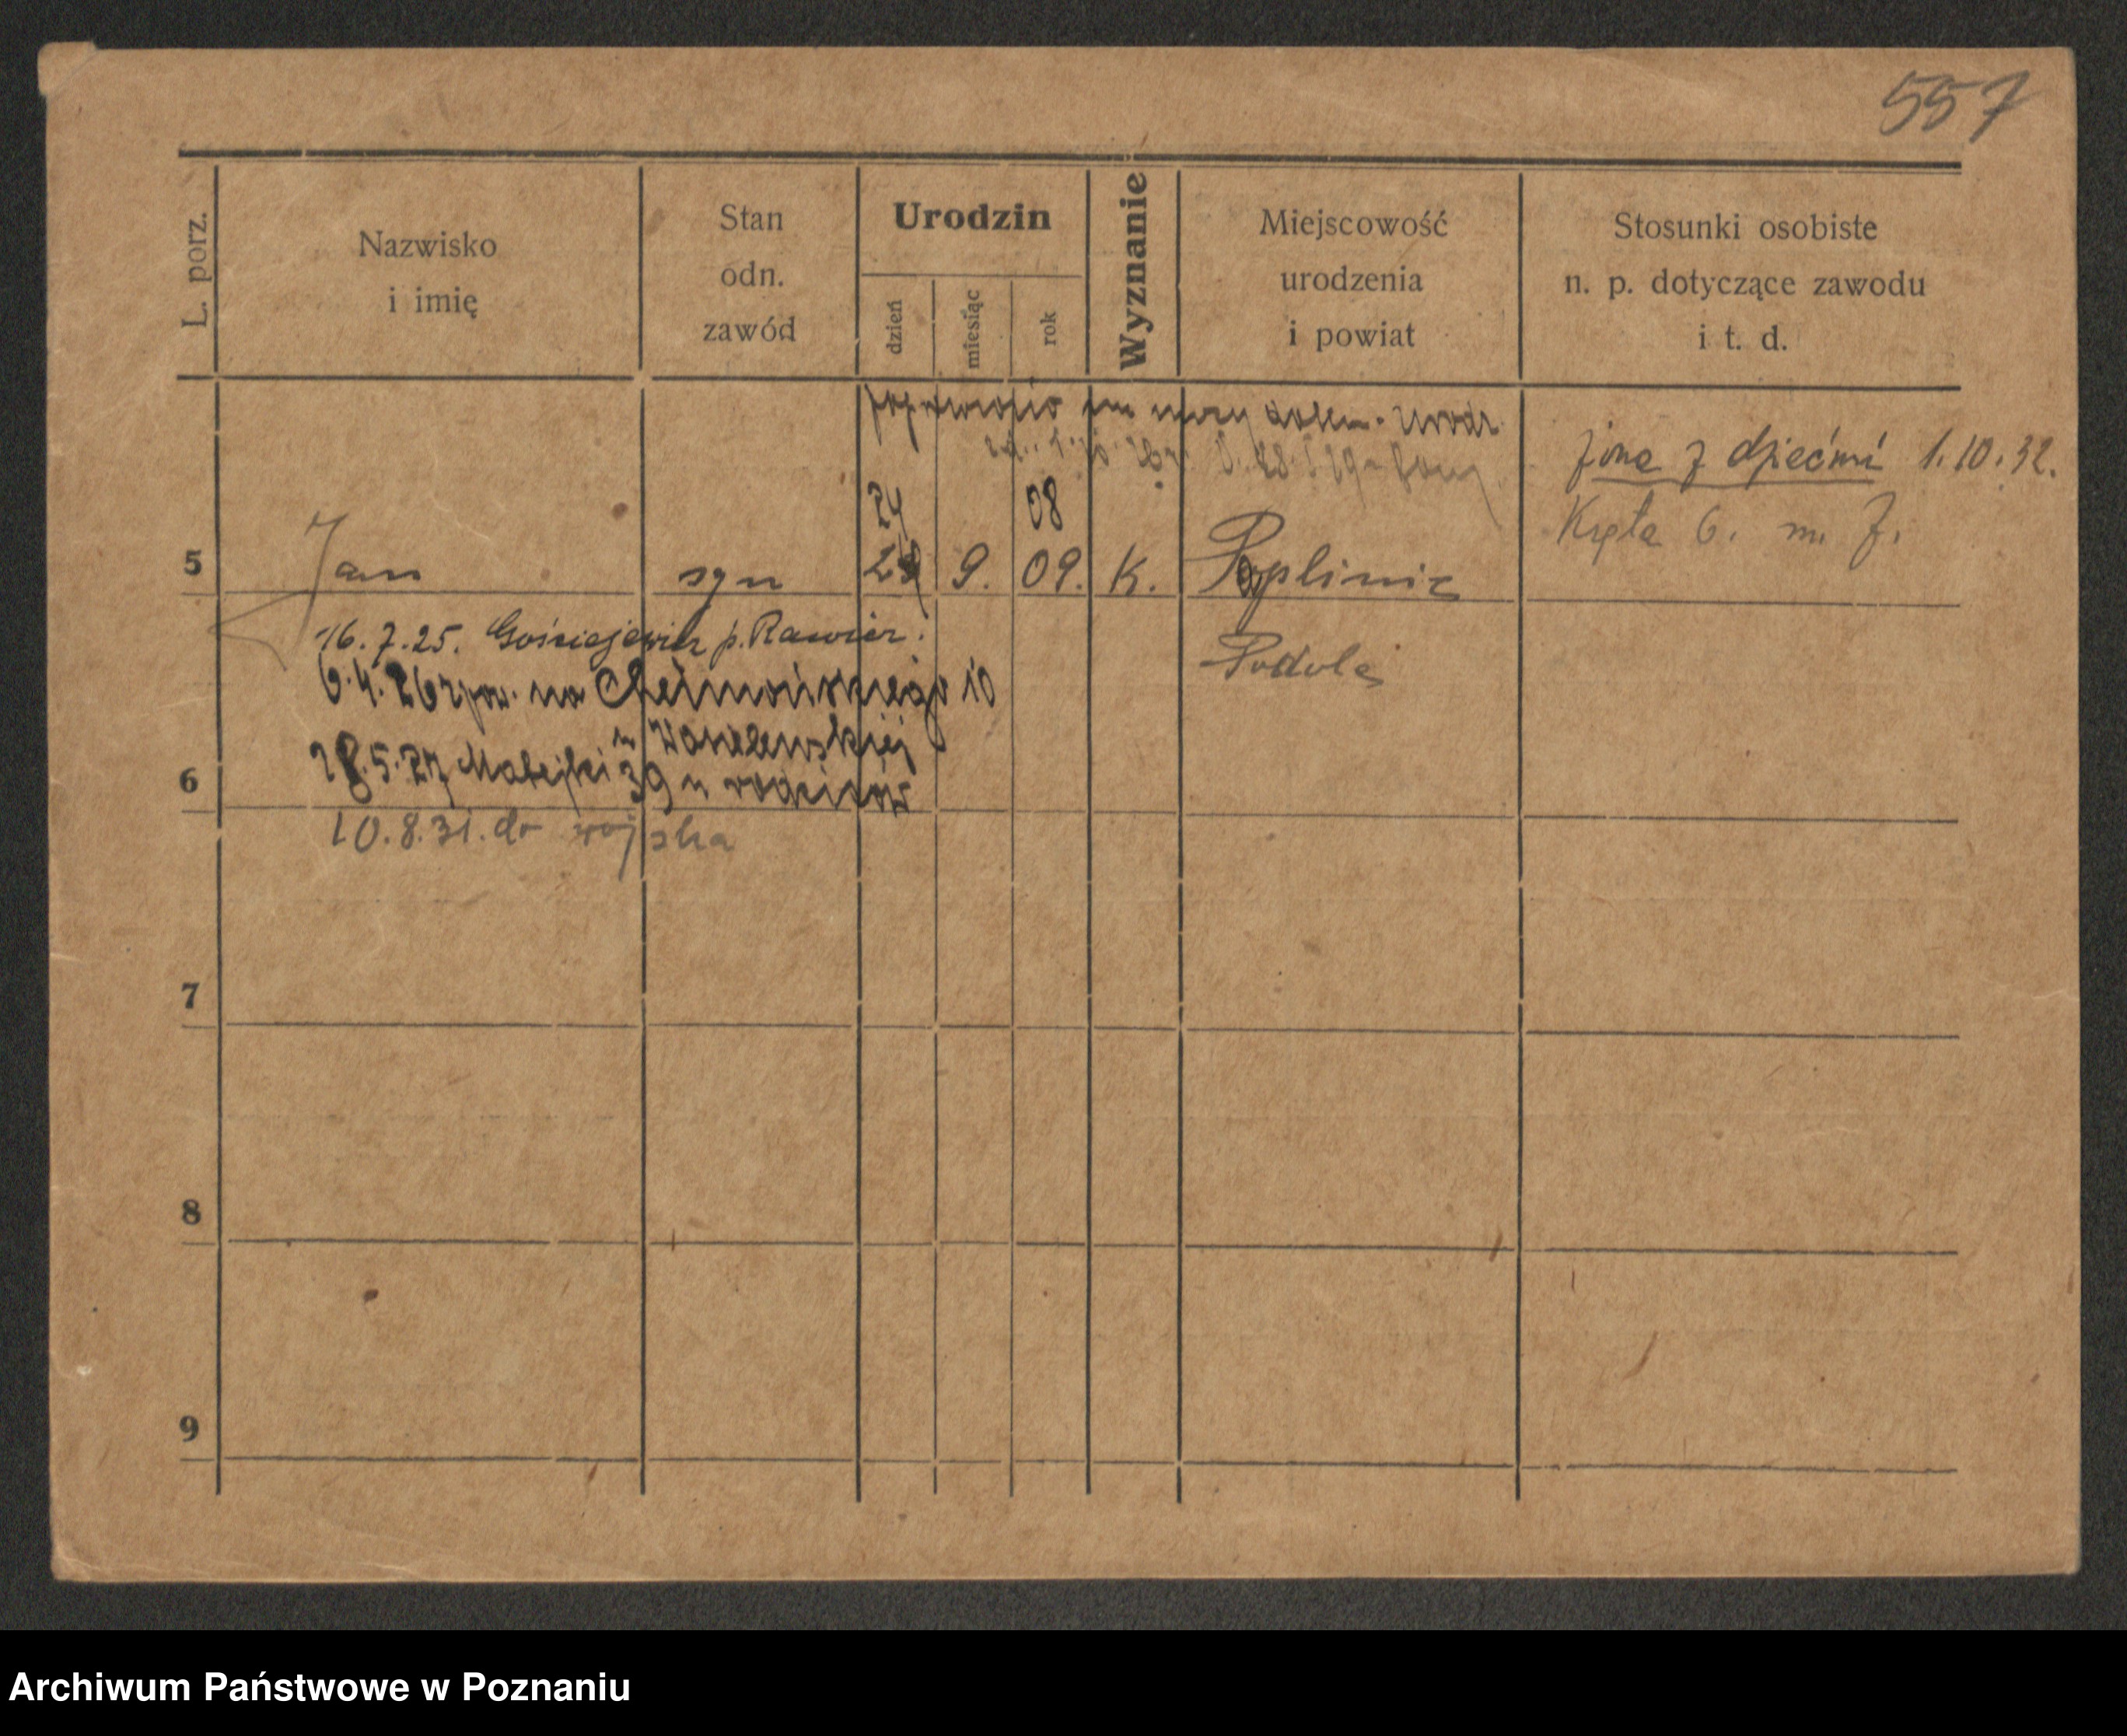 557
L. porz.
Nazwisko
i imię
Stan
odn.
zawód
Urodzin
dzień
miesiąc
rok
Wyznanie
Miejscowość
urodzenia
i powiat
Stosunki osobiste
n. p. dotyczące zawodu
i t. d.
poprawiono na mocy dokum. urodz.
żona z dziećmi 1.10.32.
Kręta 6. m. 7.
24 08
5 Jan syn 9. 09. K.
Podole
16.7.25. p. Rawicz.
6.4.26 na Chełmońskiego 10
28.5.27 Matejki 39 u rodziców
6
10.8.31. do wojska
7
8
9
Archiwum Państwowe w Poznaniu